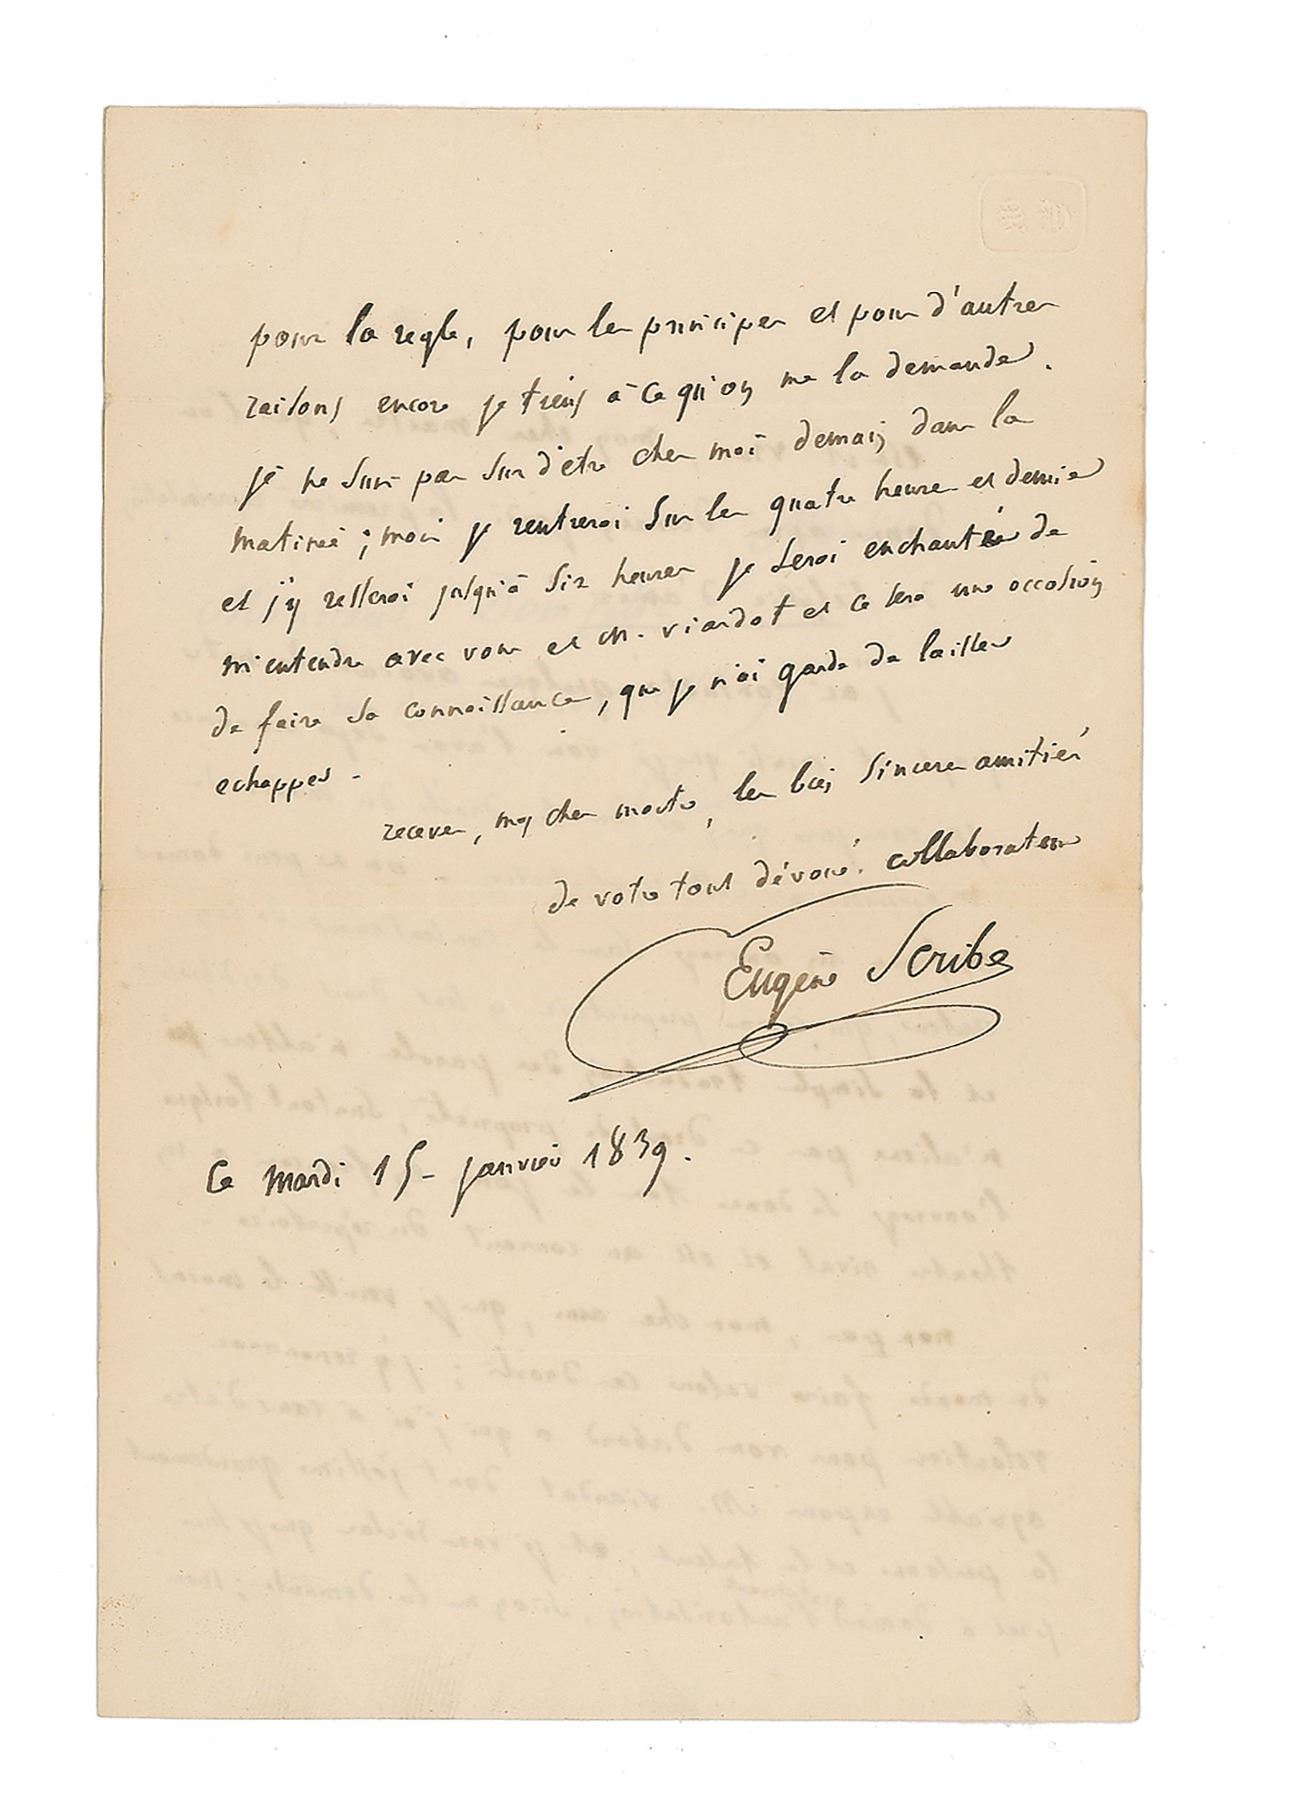 pour la regle, pour les principes et pour d'autres
raisons encore je tiens à ce qu'on me la demande.
je ne suis pas sur d'etre chez moi demain dans la
matinée ; mais je rentrerai sur les quatre heures et demie
et j'y resterai jusqu'à six heures je serai enchanté de
m'entendre avec vous et M. viardot et ce sera une occasion
de faire sa connaissance, que je n'ai garde de laisser
echapper -
recevez, mon cher maitre, les bien sinceres amitiés
de votre tout dévoué. collaborateur
Eugène Scribe
Ce mardi 15 - janvier 1839.